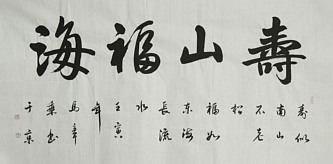 壽山福海
壽似
南山
不老
松
福如
东海
長流
水
壬寅
馬
书
于京